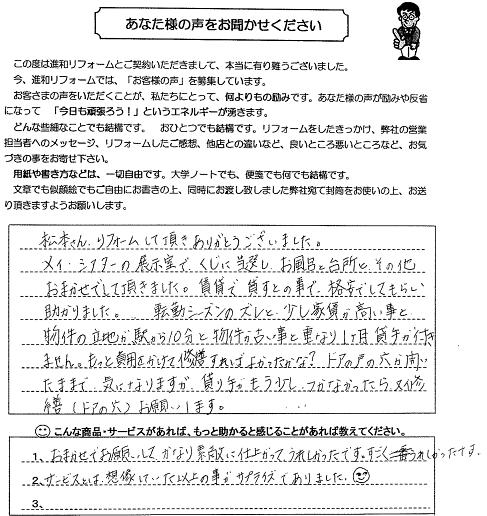 あなた様の声をお聞かせください
この度は進和リフォームとご契約いただきまして、本当に有り難うございました。
今、進和リフォームでは、「お客様の声」を募集しています。
お客さまの声をいただくことが、私たちにとって、何よりもの励みです。あなた様の声が励みや反省
になって　「今日も頑張ろう！」というエネルギーが湧きます。
どんな些細なことでも結構です。　おひとつでも結構です。リフォームをしたきっかけ、弊社の営業
担当者へのメッセージ、リフォームしたご感想、他店との違いなど、良いところ悪いところなど、お気
づきの事をお寄せ下さい。
用紙や書き方などは、一切自由です。大学ノートでも、便箋でも何でも結構です。
文章でも似顔絵でもご自由にお書きの上、同時にお渡し致しました弊社宛て封筒をお使いの上、お送
り頂きますようお願いします。
松本さん、リフォームして頂きありがとうございました。
メイ・シアターの展示室で、くじに当選し、お風呂と台所と、その他
おまかせでして頂きました。賃貸で貸すとの事で、格安でしてもらい
助かりました。　転勤シーズンのズレと、少し家賃が高い事と
物件の立地が駅から10分と物件が古い事と重なり1ヶ月貸手が付き
ません。もっと費用をかけて修繕すればよかったかな？ドアの戸の穴が開い
たままで、気になりますが、貸り手がもう少しつかなかったら、
繕（ドアの穴）お願いします。
こんな商品・サービスがあれば、もっと助かると感じることがあれば教えてください。
1、おまかせでお願いして、かなり素敵に仕上がって、うれしかったです。すごくうれしかったです。
2、サービスは、想像していた以上の事がサプライズでありました。
3、